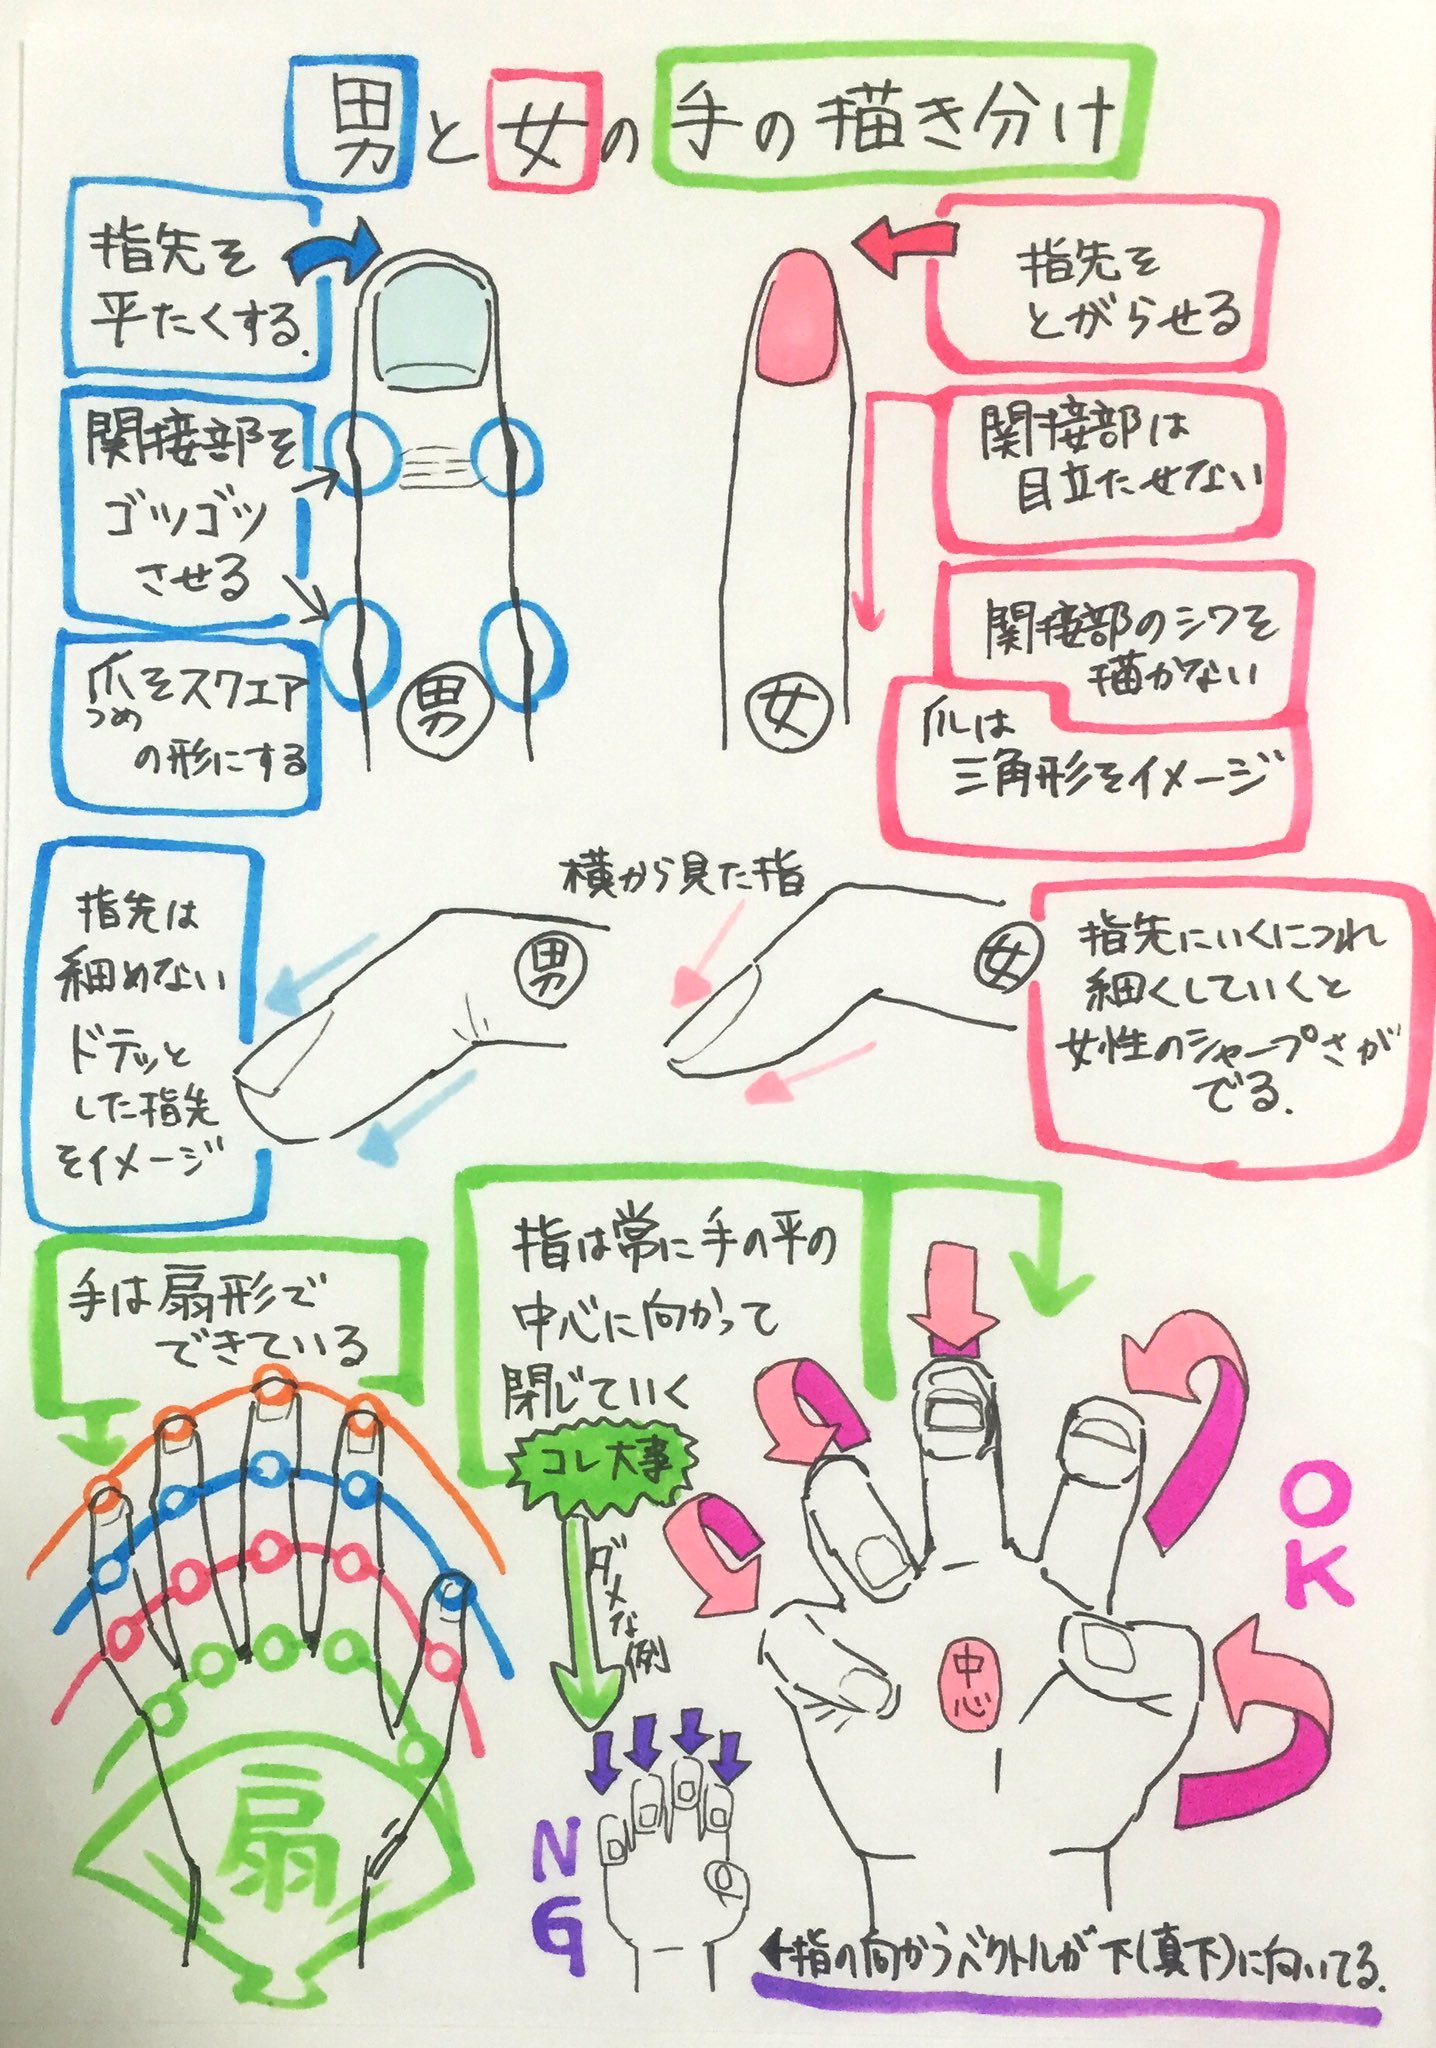 男と女の手の描き分け
指先を
平たくする.
関接部を
ゴツゴツ
させる
爪を スクエア
つめ
の形にする
男
指先を
とがらせる
関接部は
目立たせない
関接部のシワを
描かない
爪は
三角形をイメージ
女
横から見た指
指先は
細めない
ドテッと
した指先
をイメージ
男
女
指先にいくにつれ
細くしていくと
女性のシャープさが
でる.
手は扇形で
できている
扇
指は常に手の平の
中心に向かって
閉じていく
コレ大事
ダメな例
NG
中心
OK
←指の向かうベクトルが下(真下)に向いてる.